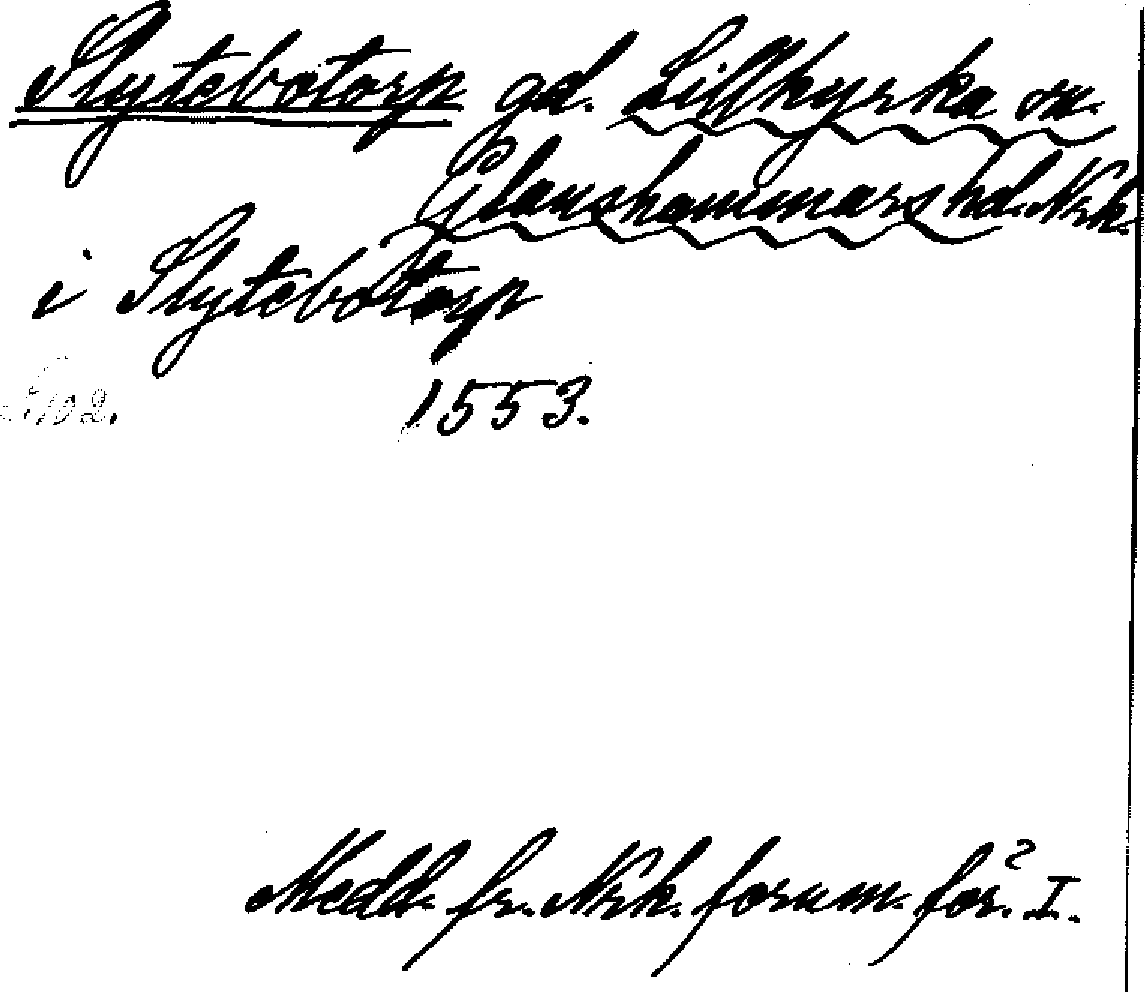 Slytebotorp gd. Lillkyrka sn.
Glanshammars hd. Nrk.
i Slytebotorp
1553.
Medd. fr. Nrk. fornm. för. I.